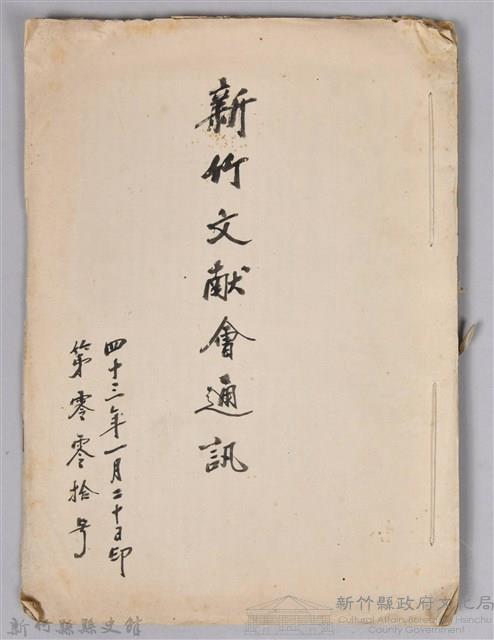 新竹文献會通訊
四十三年一月二十日印
第零零拾号
新竹縣政府文化局
Cultural Affairs Bureau of Hsinchu
County Government
新竹縣縣史館